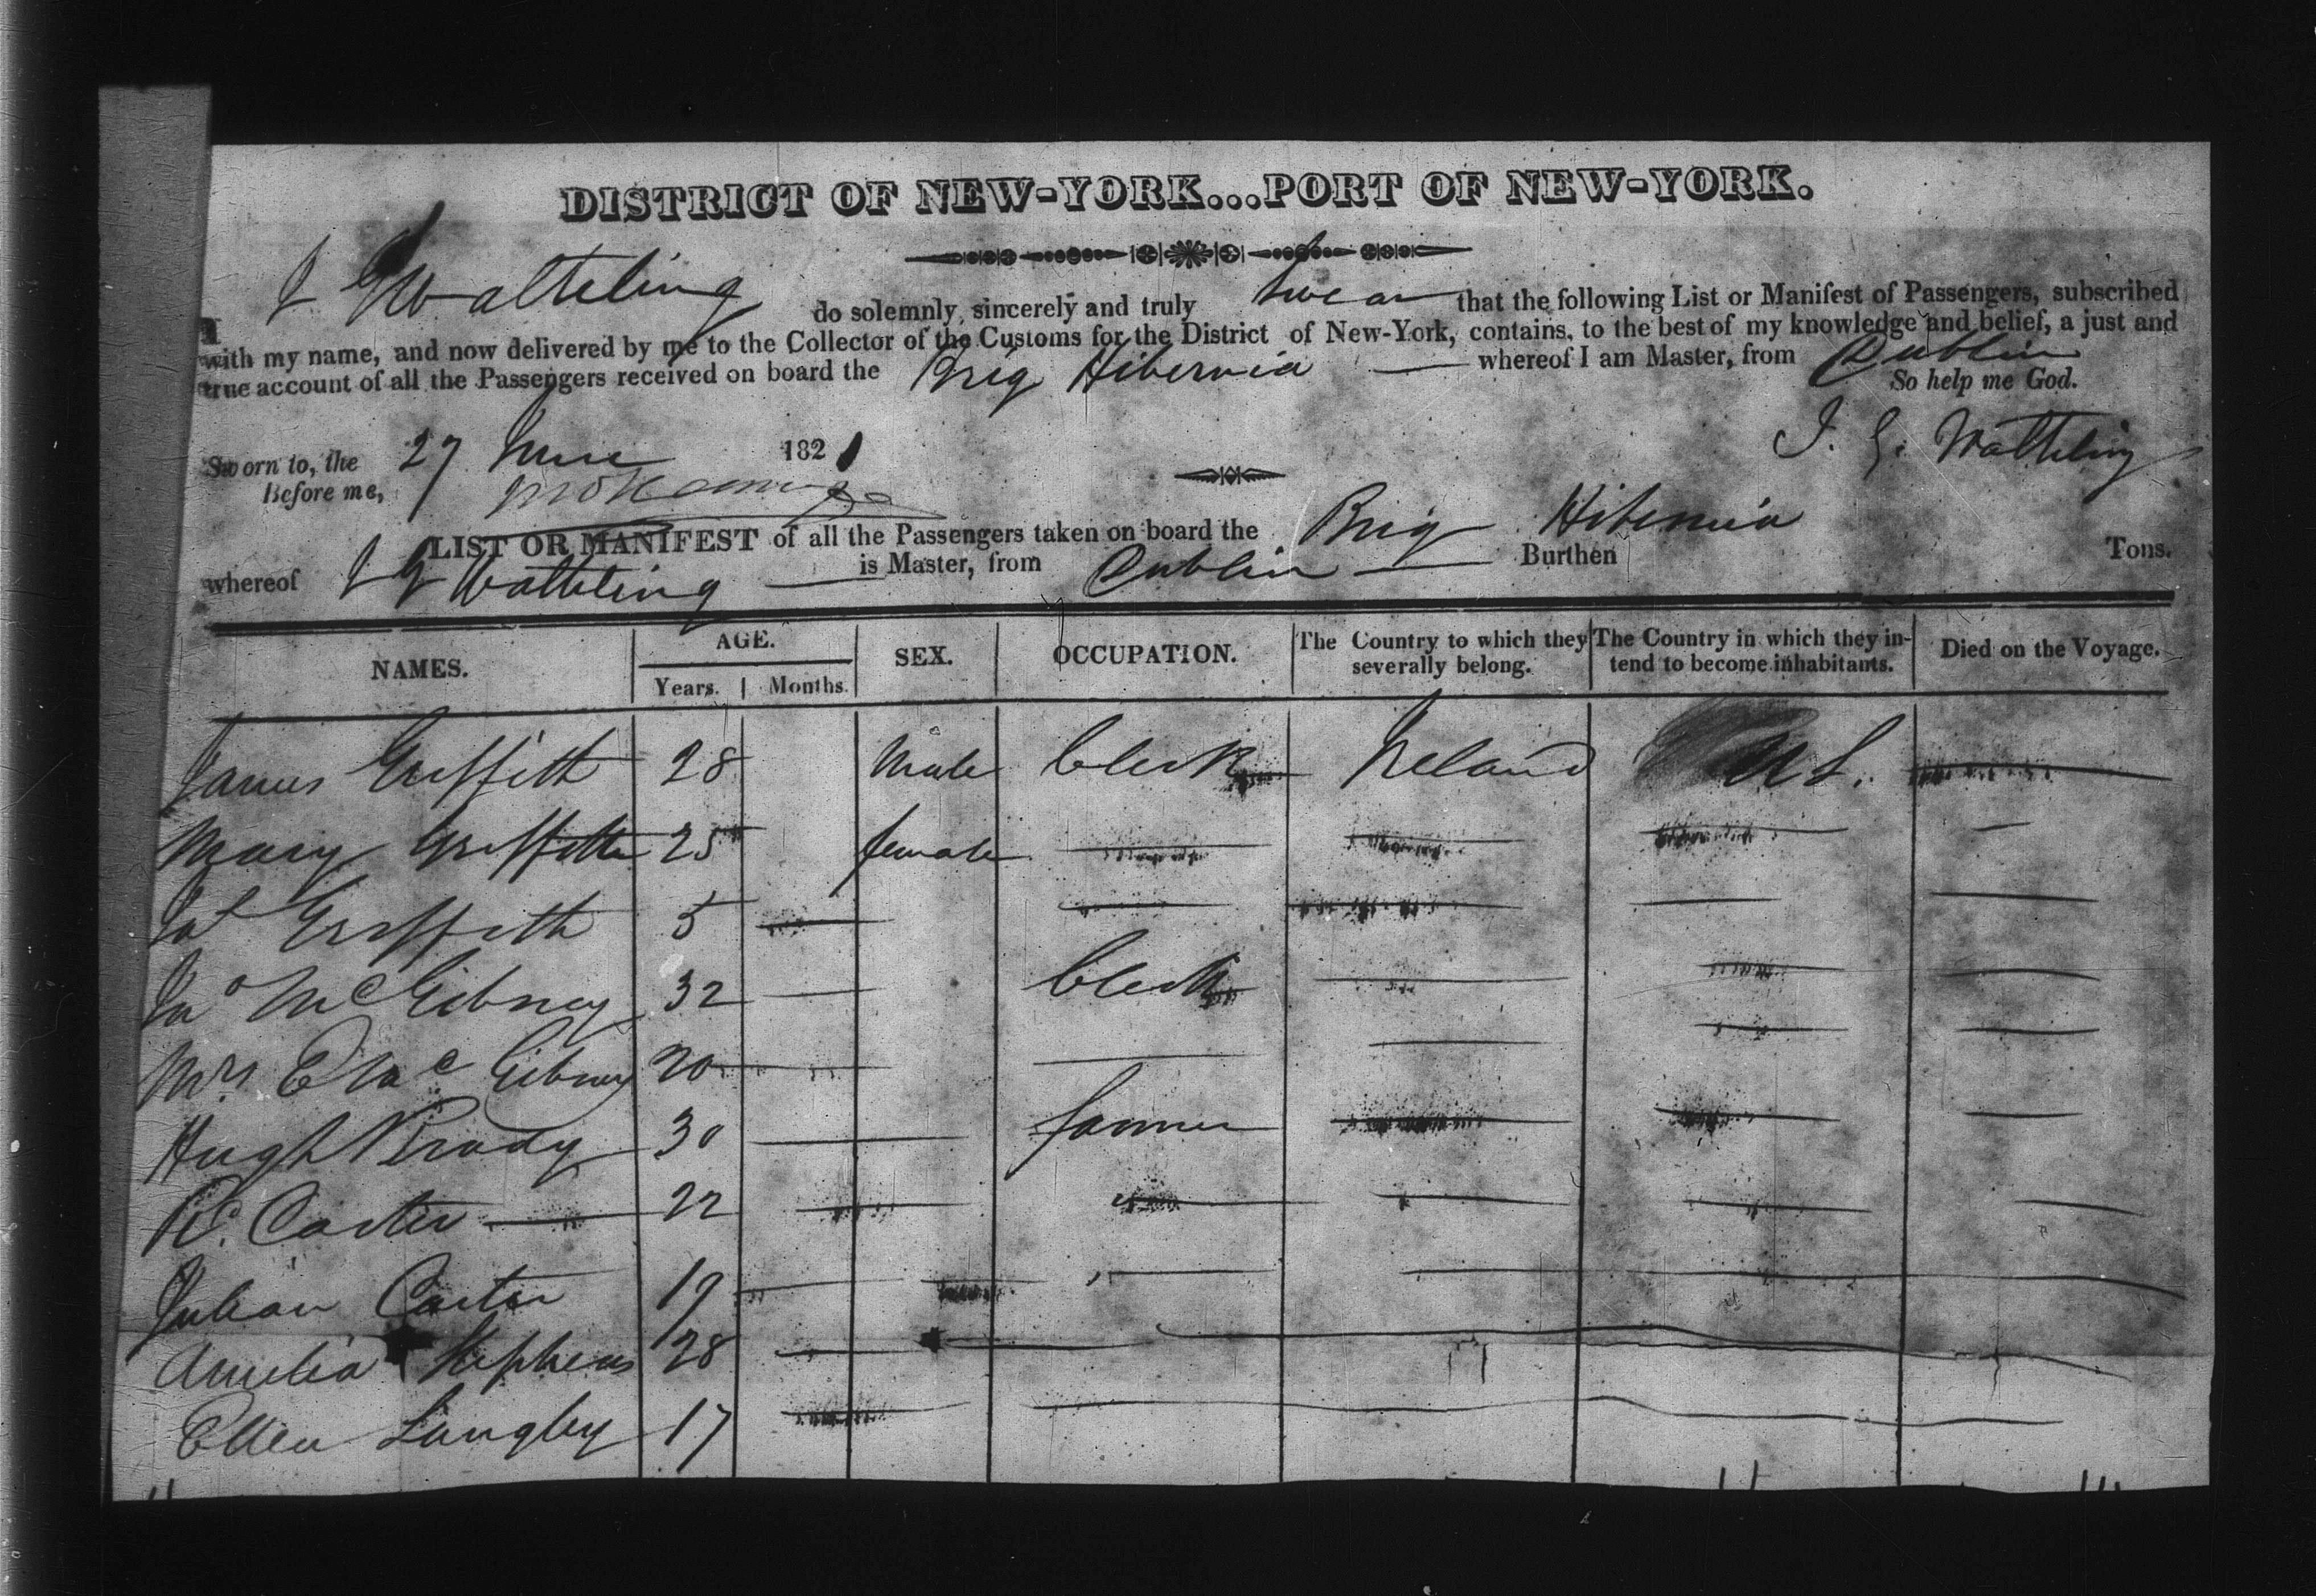 DISTRICT OF NEW-YORK...PORT OF NEW-YORK.
I J G Watteling do solemnly, sincerely and truly swear that the following List or Manifest of Passengers, subscribed
with my name, and now delivered by me to the Collector of the Customs for the District of New-York, contains, to the best of my knowledge and belief, a just and
true account of all the Passengers received on board the Brig Hibernia whereof I am Master, from Dublin
So help me God.
Sworn to, the 27 June 1821 J. G. Watteling
Before me,
LIST OR MANIFEST of all the Passengers taken on board the Brig Hibernia
whereof J G Watteling is Master, from Dublin Burthen Tons.
NAMES. AGE. SEX. OCCUPATION. The Country to which they severally belong. The Country in which they intend to become inhabitants. Died on the Voyage.
Years. Months.
James Griffith 28 Male Clerk Ireland U S.
Mary Griffith 25 female
Griffith 5
Jno McGibney 32 Clerk
Mrs E McGibney 20
Hugh Brady 30 farmer
Carter 22
Julian Carter 19
Amelia Stephens 28
Ellen Langley 17